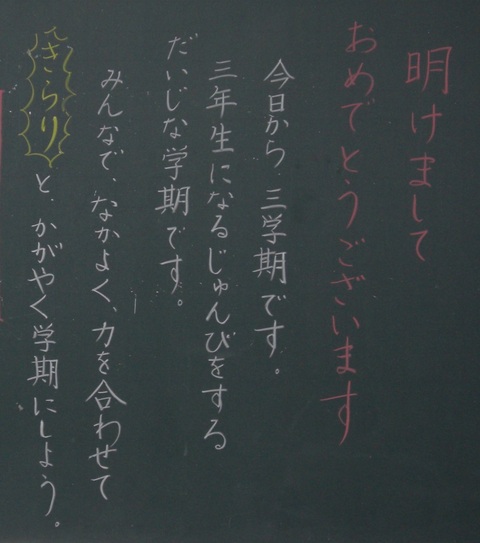 明けまして
おめでとうございます
今日から、三学期です。
三年生になるじゅんびをする
だいじな学期です。
みんなで、なかよく、力を合わせて
きらりと、かがやく学期にしよう。